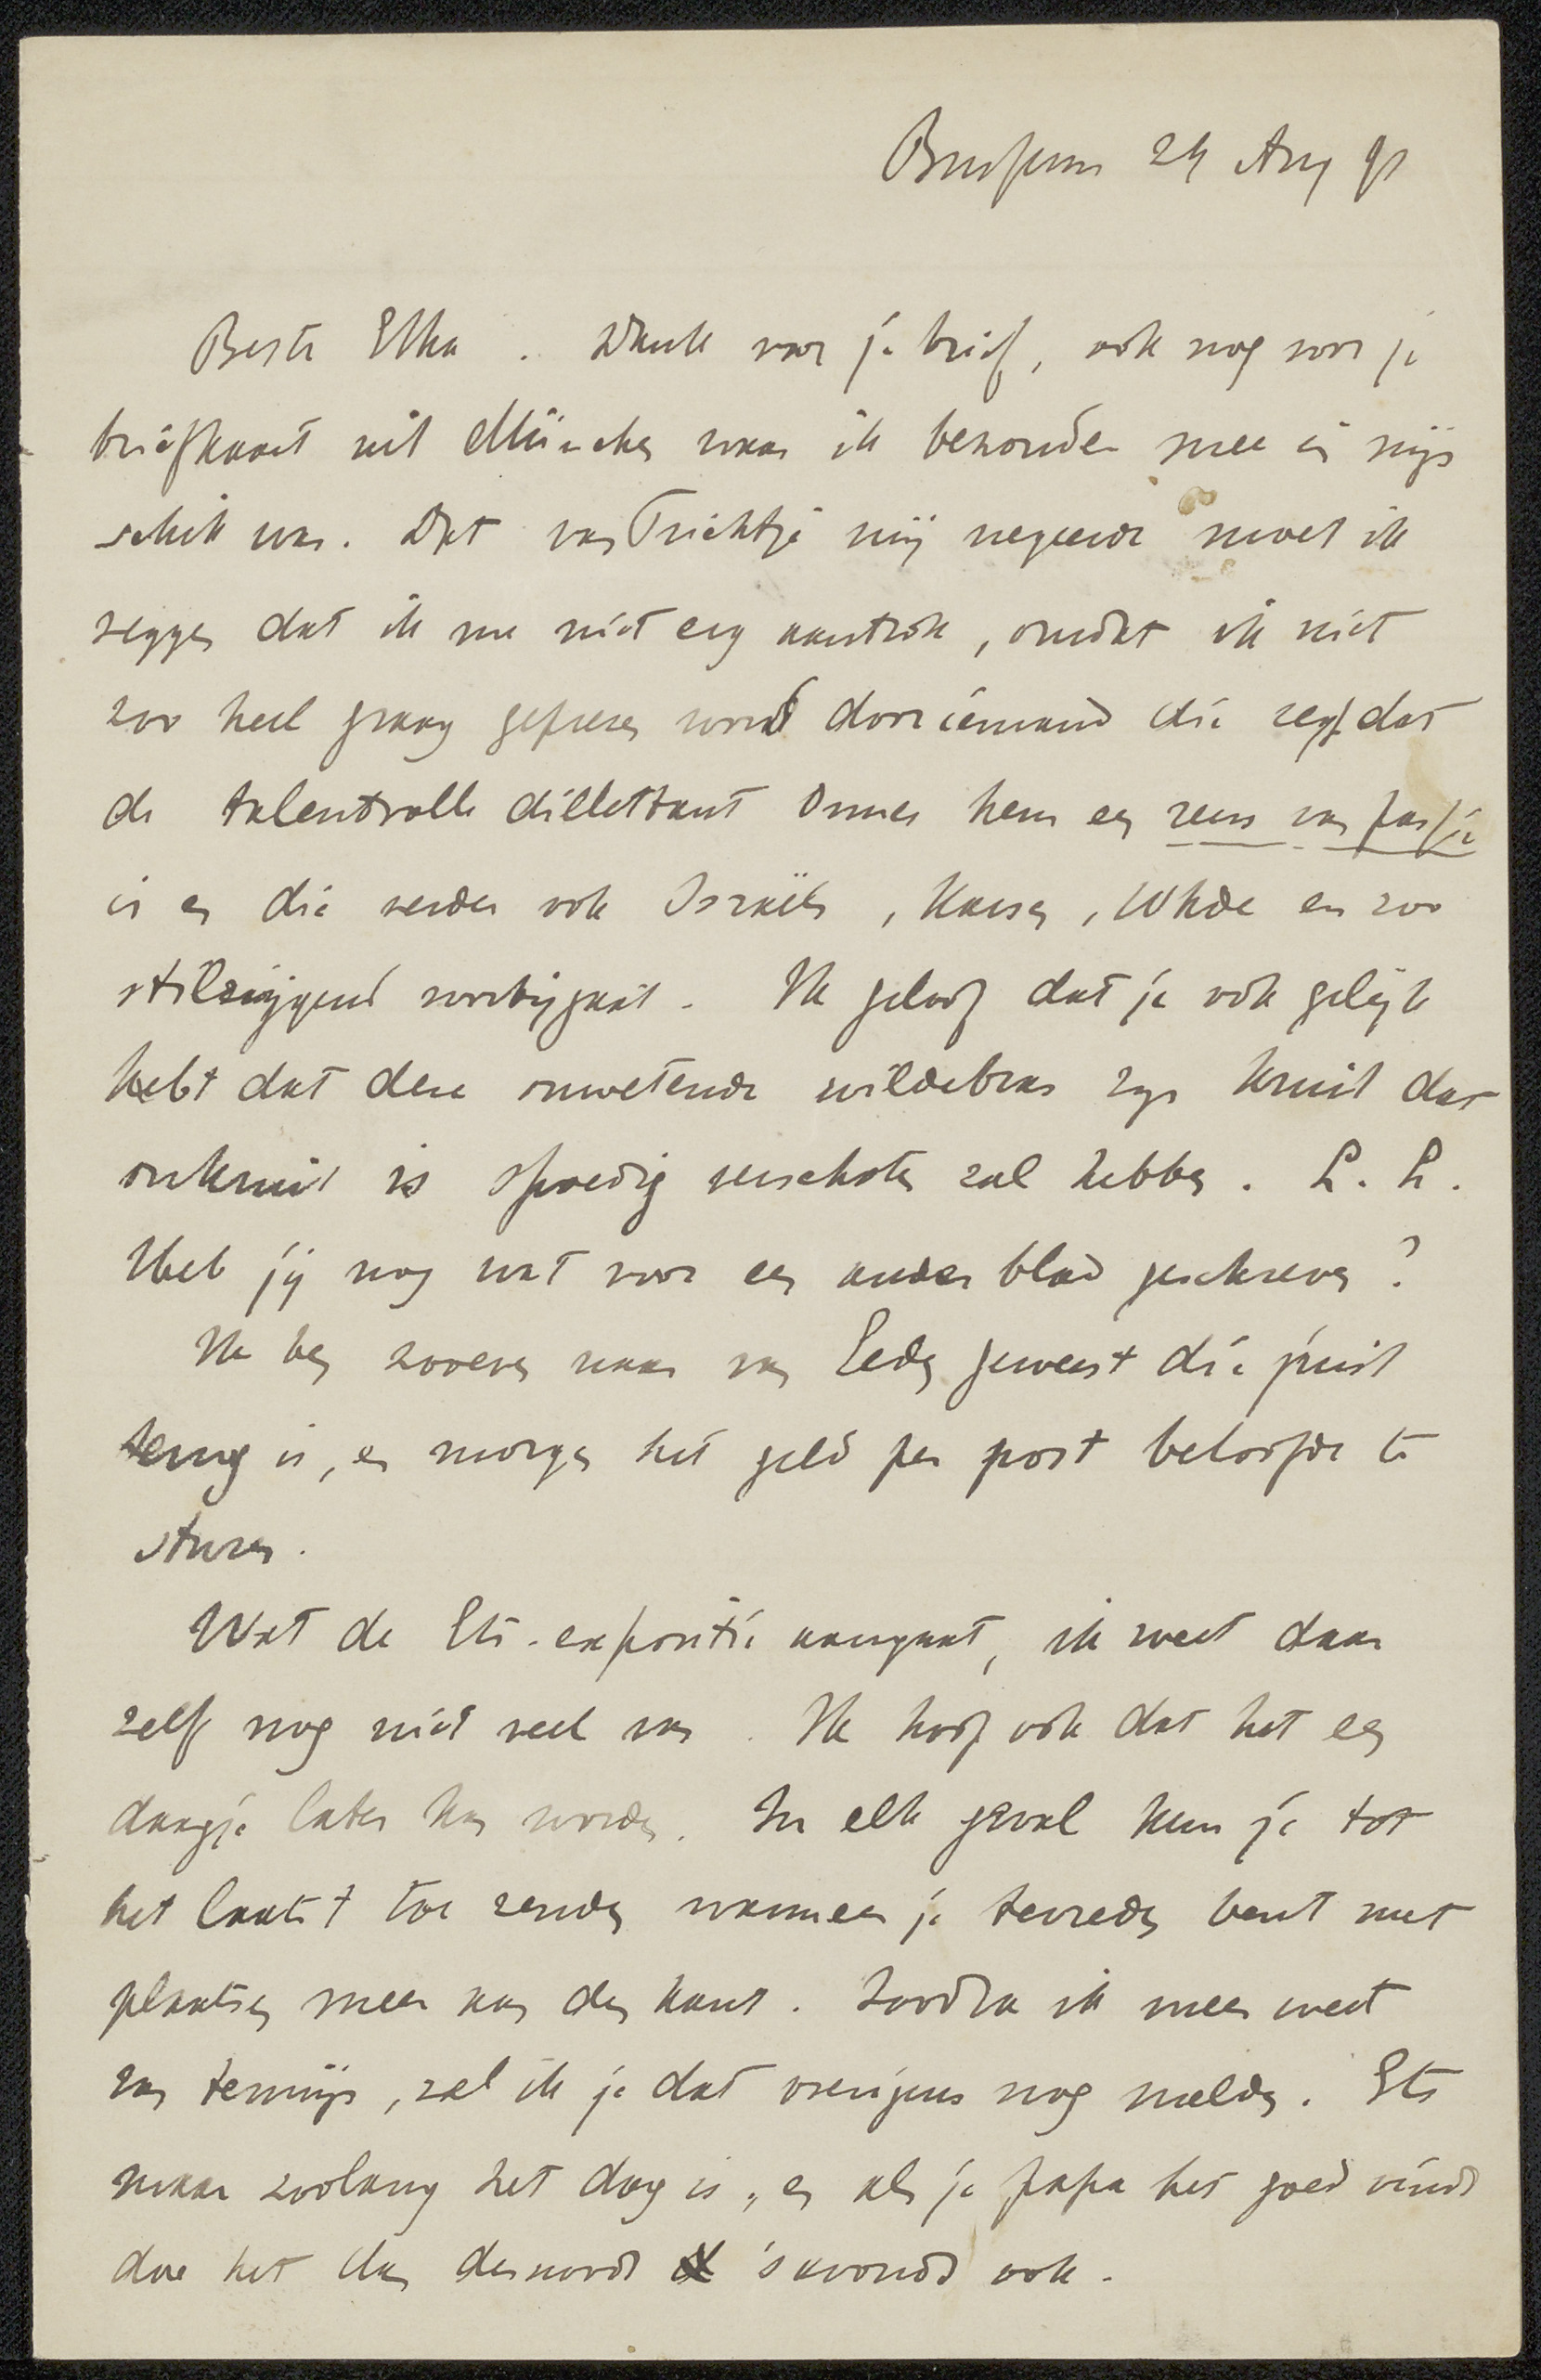 Bussum 24 Aug 91
Beste Etha. Dank voor je brief, ook nog voor je
briefkaart uit München waar ik bizonder mee in mijn
schik was. Dat van Trichtje mij negeerde moet ik
zeggen dat ik me niet erg aantrok, omdat ik niet
zoo heel graag geprezen word door iemand die zegt dat
de talentvolle dillettant Onnes hem een reus van fantasie
is en die verder ook Israëls, Uhde en zoo
stilzwijgend voorbijgaat. Ik geloof dat je ook gelijk
hebt dat deze onwetende wildebras zijn kruit dat
onkruid is spoedig verschoten zal hebben. L. L.
Heb jij nog wat voor een ander blad geschreven?
Ik ben zooeven naar van Eeden geweest die juist
terug is, en morgen het geld per post beloofde te
sturen.
Wat de Ets-expositie aangaat, ik weet daar
zelf nog niet veel van. Ik hoop ook dat het een
daagje later kan worden. In elk geval kun je tot
het laatst toe zenden wanneer je tevreden bent met
plaatsen meer aan den kant. Zoodra ik meer weet
van termijn, zal ik je dat overigens nog melden. Ets
maar zoolang het dag is, en als je papa het goed vindt
doe het dan desnoods 's avonds ook.